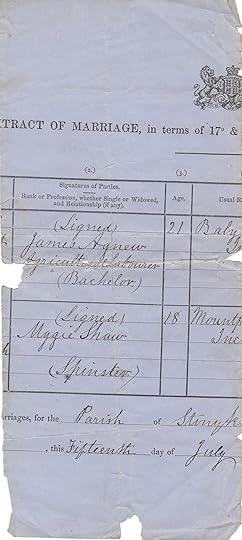 TRACT OF MARRIAGE, in terms of 17° &
(2.) (3.)
Signatures of Parties.
Rank or Profession, whether Single or Widowed, and Relationship (if any). Age. Usual R
(Signed) 21
James Agnew
Agricultural Labourer
(Bachelor)
(Signed) 18
Maggie Shaw
(Spinster)
rriages, for the Parish of Stonyk
, this Fifteenth day of July